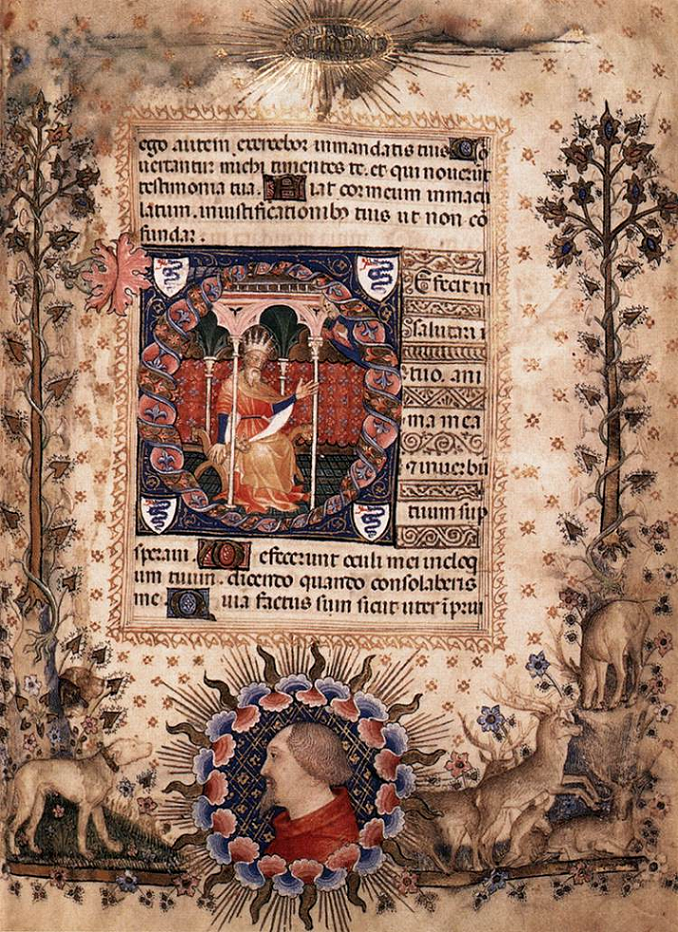 ego autem exercebor in mandatis tuis Co
uertantur michi timentes te. et qui nouerūt
testimonia tua. Fiat cor meum inmacu
latum. in iustificationibꝫ tuis ut non cō
fundar.
DEfecit in
salutari
tuo. ani
ma mea
⁊ in uerbū
tuum sup
sperani. Defecerunt oculi mei in eloq
um tuum. dicento quando consolaberis
me. Quia factus sum sicut uter ī prui